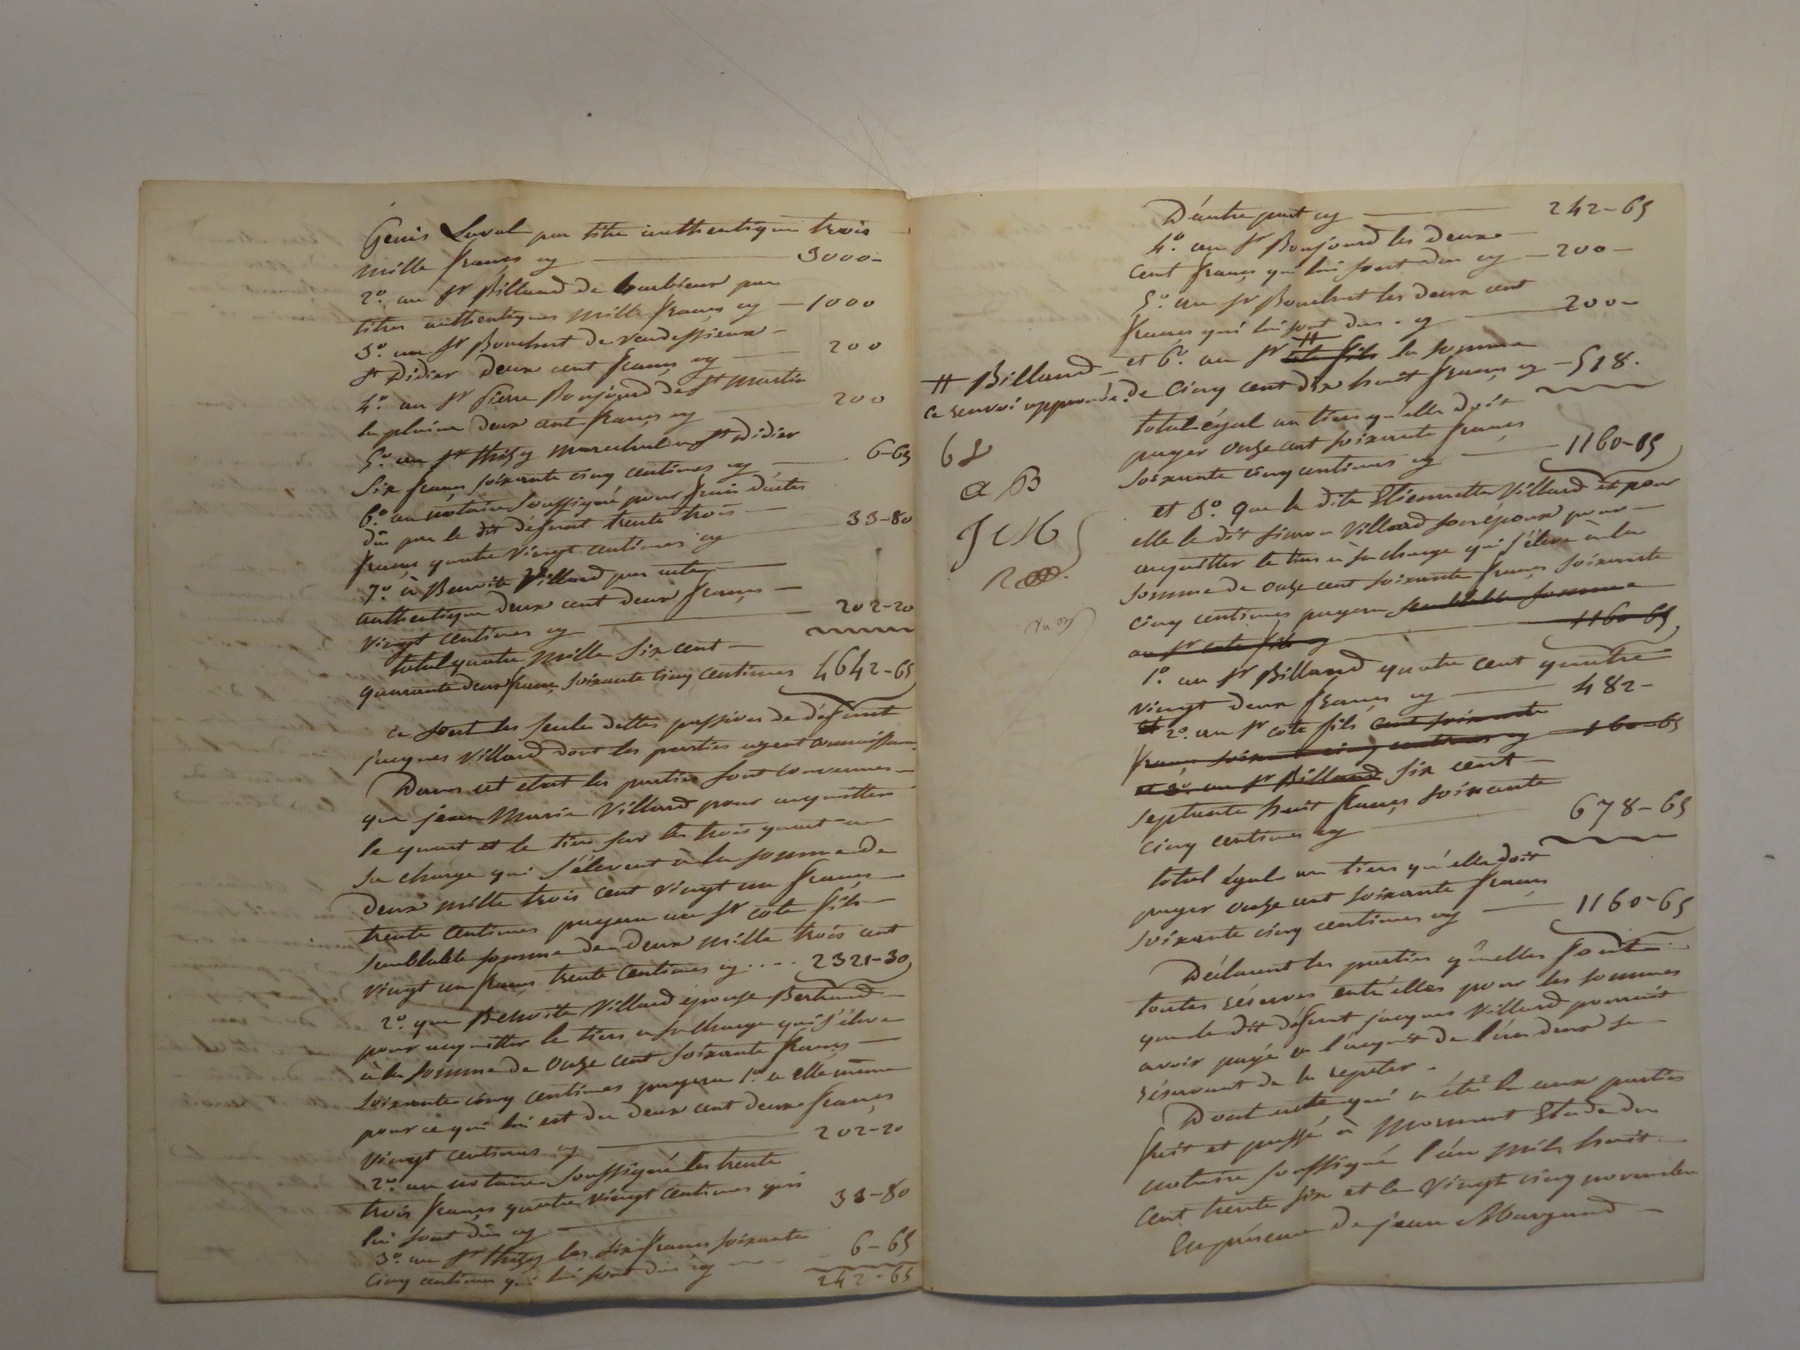 Genis Laval par titre authentique trois
mille francs cy 3000-
2º. au Sr Billand de barbieux par
titres authentiques mille francs cy - 1000
3º au Sr Bouchut de vendessieux -
St Didier deux cent francs cy 200
4º. au Sr Pierre Bonjourd de St martin
la plaine deux cent francs cy 200
5º au Sr thizy marechal a St didier
Six francs soixante cinq centimes cy 6-65
6º. au notaire soussigné pour frais d'actes
dûs par le dit défunt trente trois -
francs quatre Vingt centimes cy 33-80
7º. à Benoite Villard par acte
authentique deux cent deux francs -
Vingt centimes cy 202-20
total quatre mille six cent -
quarante deux francs soixante cinq centimes 4642-65
ce sont les seules dettes passives de défunt
jacques Villard dont les parties ayent connoissance.
Dans cet etat les parties sont convenues -
que jean Marie Villard pour acquitter
le quart et le tiers sur les trois quart a
sa charge qui s'élevent à la somme de
deux mille trois cent vingt un francs
trente centimes payera au Sr cote fils -
semblable somme de deux mille trois cent
vingt un francs trente centimes cy .... 2321-30
2º. que Benoite Villard épouse Bertrand -
pour acquitter le tiers a sa charge qui s'élève
à la somme de onze cent soixante francs -
soixante cinq centimes payera 1º. a elle même
pour ce qui lui est du deux cent deux francs
vingt centimes cy 202-20
2º. au notaire soussigné les trente
trois francs quatre vingt centimes qui
lui sont dûs cy 33-80
3º. au Sr thizy les six francs soixante
cinq centimes qui lui sont dûs cy 6-65
242-65
D'autre part cy 242-65
4º. au Sr Bonjourd les deux -
cent francs qui lui sont dus cy - 200 -
5º. au Sr Bouchut les deux cent
francs qui lui sont dus . cy 200-
et 6º. au Sr cote fils la somme
# Billand
ce renvoi approuvé. de cinq cent dix huit francs cy - 518.
total égal au tiers qu'elle doit
payer onze cent soixante francs
soixante cinq centimes cy 1160-65
a B
J M
et 3º. que la dite Etiennette Villard et pour
elle le dit Villard son époux pour -
acquitter le tiers a sa charge qui s'élève à la
somme de onze cent soixante francs soixante
cinq centimes payera semblable somme
au Sr cote fils cy 1160-65,
1º. au Sr Billand quatre cent quatre
vingt deux francs cy 482-
et 2º. au Sr cote fils cent soixante
francs soixante cinq centimes cy 160-65
et 3º. au Sr Billand six cent -
septante huit francs soixante
cinq centimes cy 678-65
total égal au tiers qu'elle doit
payer onze cent soixante francs
soixante cinq centimes cy 1160-65
Déclarent les parties qu'elles font
toutes réserves entr'elles pour les sommes
que le dit défunt jacques Villard pouvait
avoir payé a l'acquit de l'un deux se
réservant de les repeter.
Dont acte qui a été lu aux parties
fait et passé à Mornant Etude du
notaire soussigné l'an mil huit -
cent trente six et le vingt cinq novembre
En présence de jean Margand -